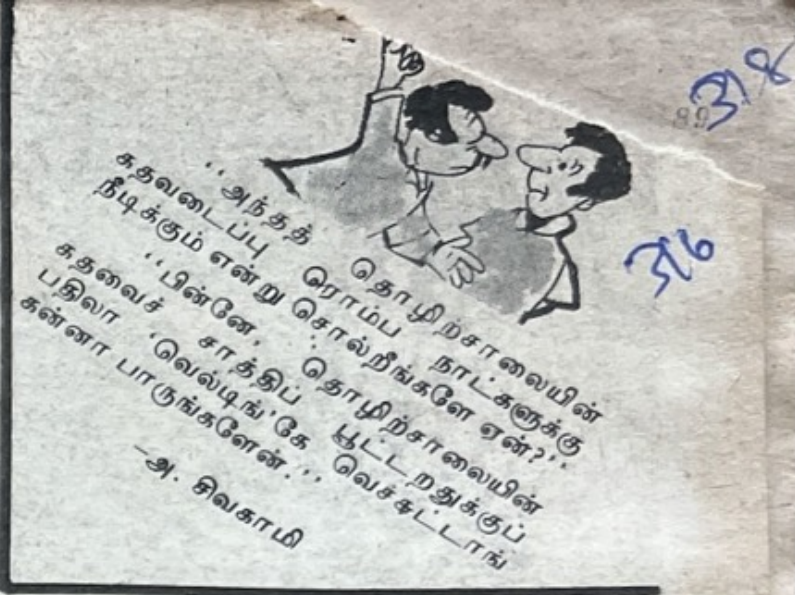 318
89
316
''அந்தத் தொழிற்சாலையின்
கதவடைப்பு ரொம்ப நாட்களுக்கு
நீடிக்கும் என்று சொல்றீங்களே ஏன்?''
''பின்னே, தொழிற்சாலையின்
கதவைச் சாத்திப் பூட்டறதுக்குப்
பதிலா 'வெல்டிங்'கே வெச்சுட்டாங்
கன்னா பாருங்களேன்.''
—அ. சிவகாமி